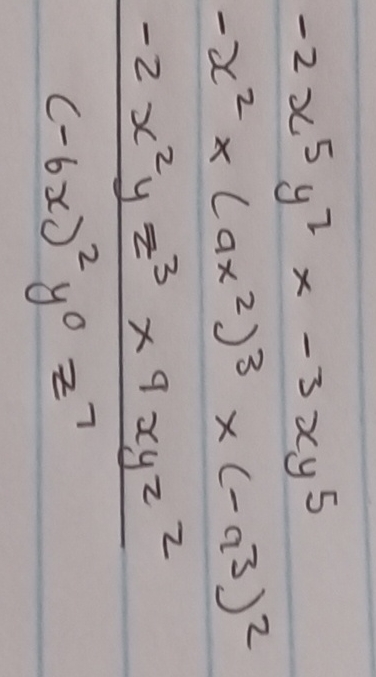 -2x⁵y⁷ × -3xy⁵
-x² × (ax²)³ × (-a³)²
-2x²yz³ × 9xyz²
(-6x)²y⁰z⁷